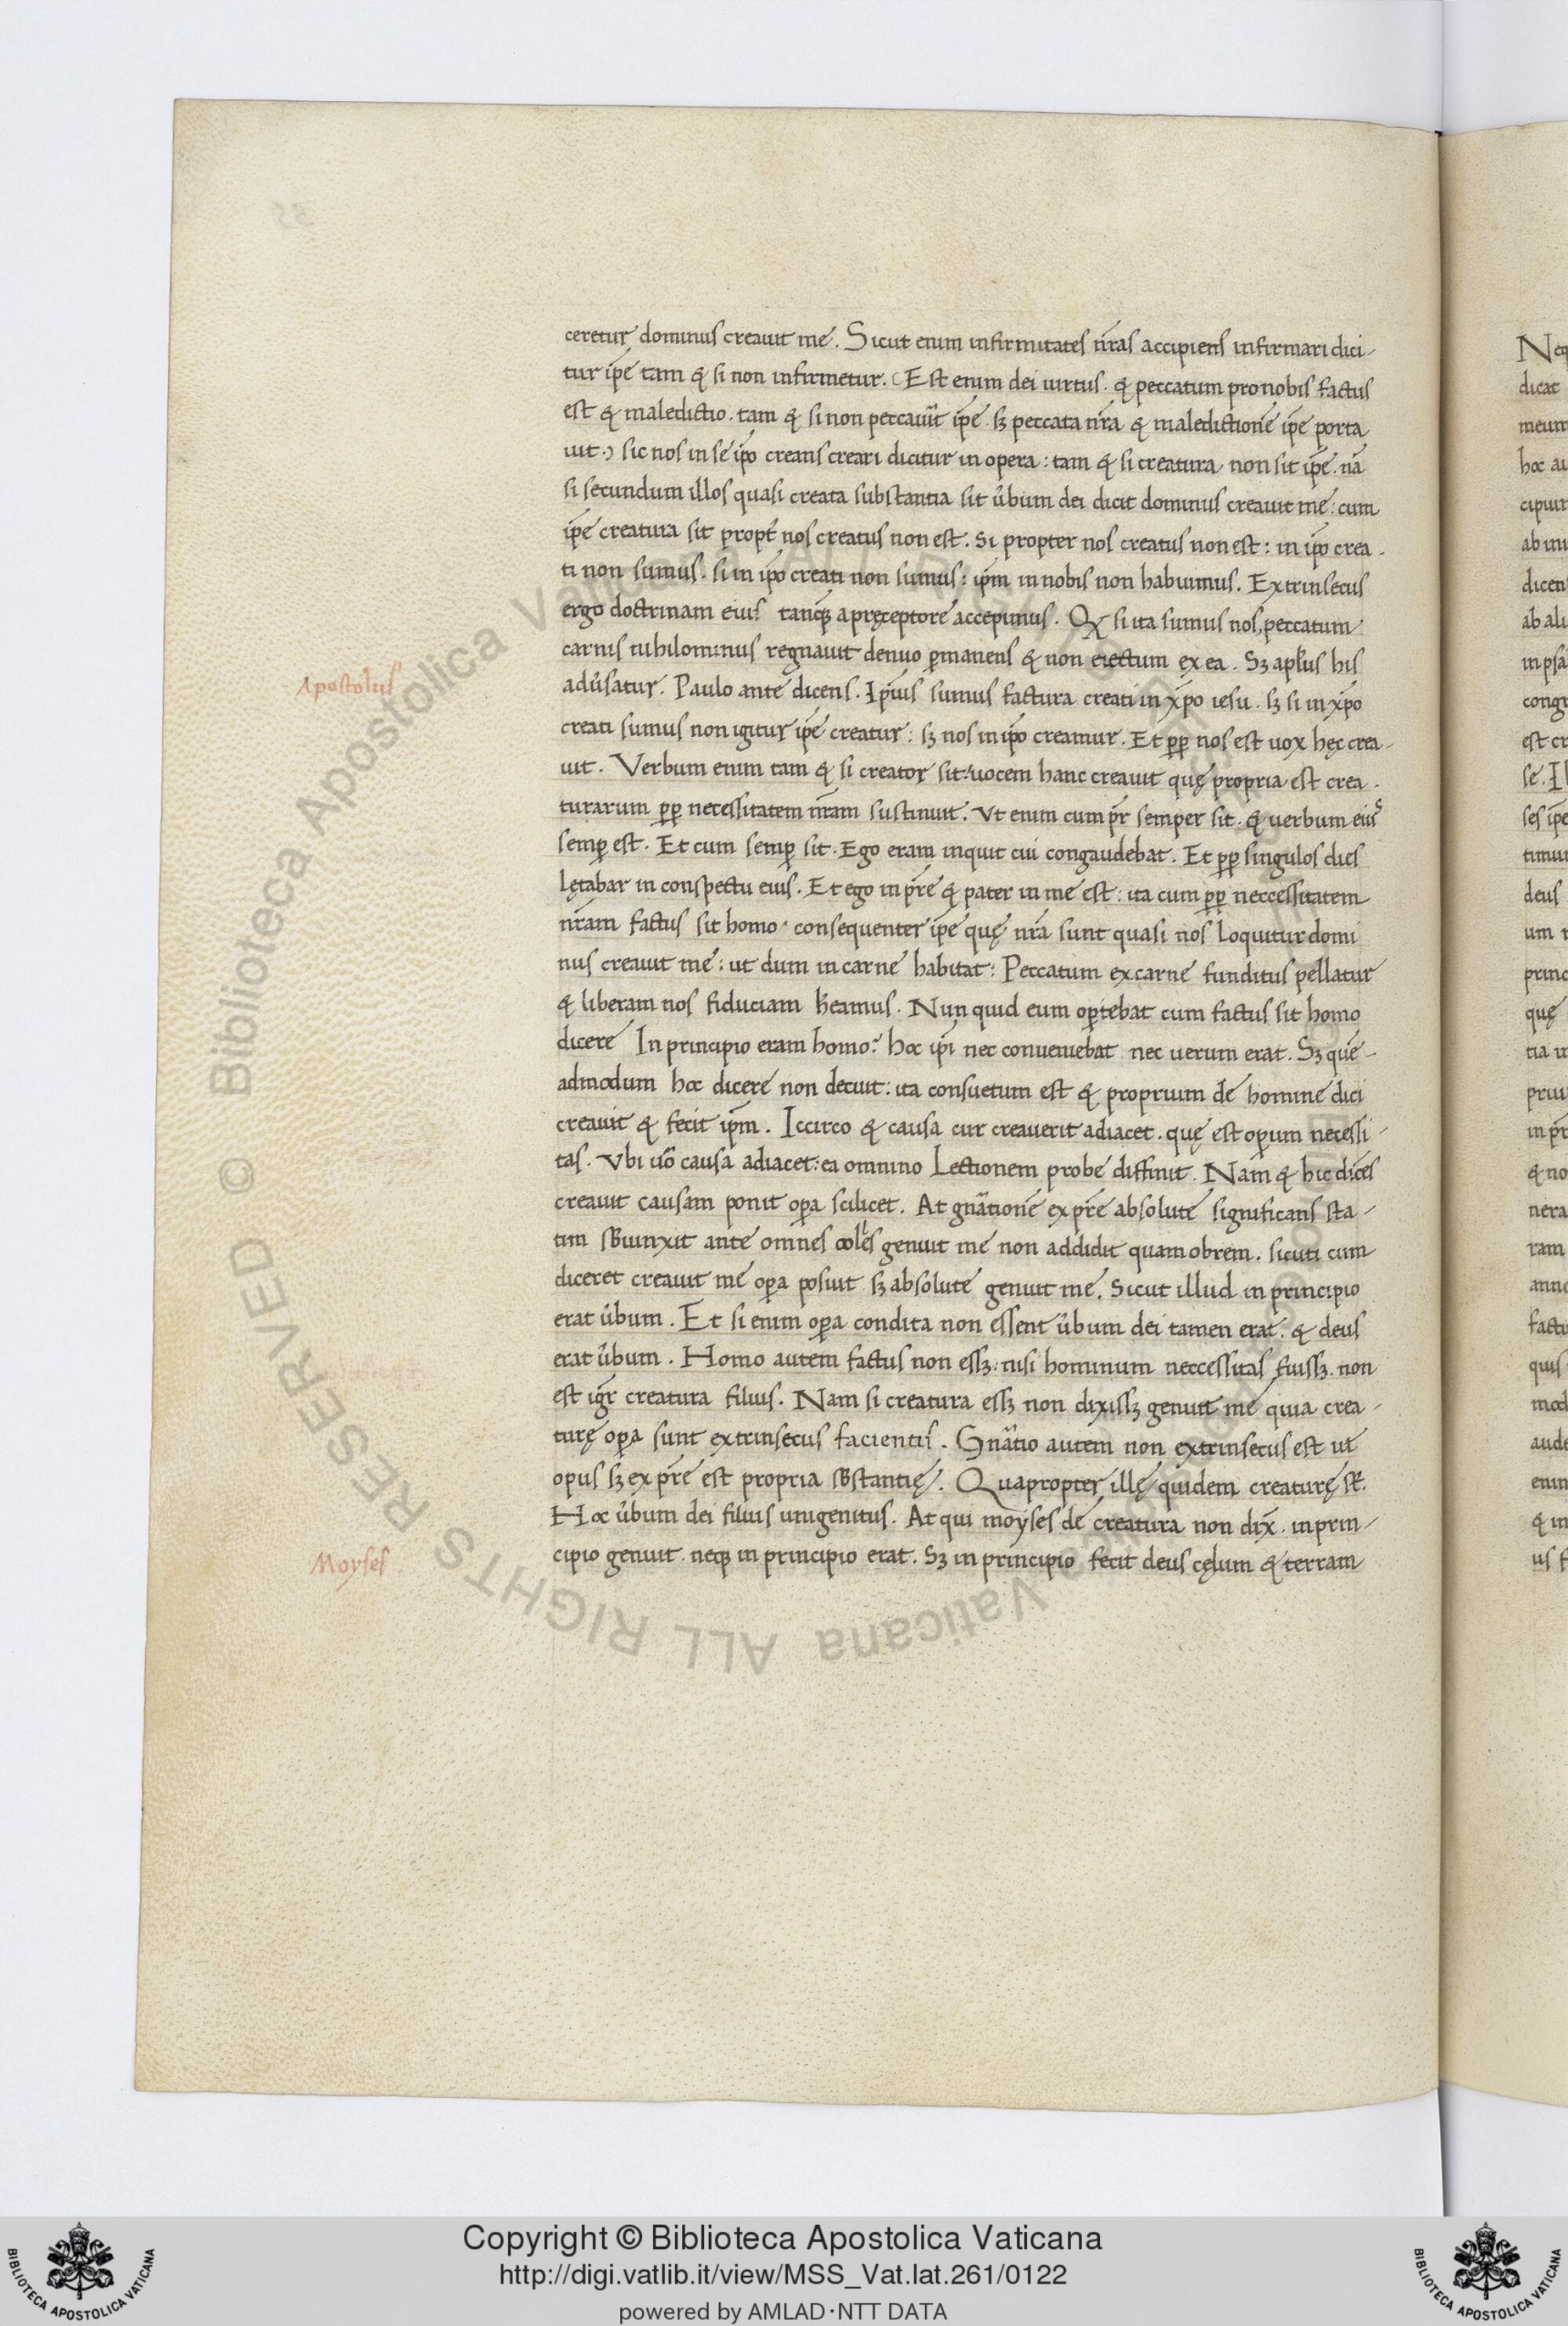 ceretur dominus creauit me. Sicut enim infirmitates nr̃as accipiens infirmari dici-
tur ip̃e tam & si non infirmetur. (Est enim dei uirtus. & peccatum pro nobis factus
est & maledictio. tam & si non peccauit̃ ip̃e. sꝫ peccata nr̃a & maledictionẽ ip̃e porta
uit.) sic nos in se ip̃o creans creari dicitur in opera: tam & si creatura non sit ip̃e. nã
si secundum illos quasi creata substantia sit u̓bum dei dicit dominus creauit me: cum
ip̃e creatura sit propt̓ nos creatus non est. Si propter nos creatus non est: in ip̃o crea-
ti non sumus. si in ip̃o creati non sumus: ip̃m in nobis non habuimus. Extrinsecus
ergo doctrinam eius tanqꝫ a pręceptore accepimus. Qꝫ si ita sumus nos, peccatum
carnis nihilominus regnauit denuo ꝑmanens & non eiectum ex ea. Sꝫ apl̃us his
Apostolus
adu̓satur. Paulo ante dicens. Ip̃ius sumus factura creati in xp̃o iesu. sꝫ si in xp̃o
creati sumus non igitur ip̃e creatur: sꝫ nos in ip̃o creamur. Et ꝓꝑ nos est uox hęc crea-
uit. Verbum enim tam & si creator sit: uocem hanc creauit quę propria est crea-
turarum ꝓꝑ necessitatem nr̃am sustinuit. Vt enim cum pr̃ semper sit. & uerbum eius
semꝑ est. Et cum semꝑ sit. Ego eram inquit cui congaudebat. Et ꝓꝑ singulos dies
lętabar in conspectu eius. Et ego in pr̃e & pater in me est: ita cum ꝓꝑ neccessitatem
nr̃am factus sit homo. consequenter ip̃e quę nr̃a sunt quasi nos loquitur domi
nus creauit me: ut dum in carne habitat: Peccatum ex carne funditus pellatur
& liberam nos fiduciam heamus. Nun quid eum oꝑtebat cum factus sit homo
dicere In principio eram homo? hoc ip̃i nec conueniebat nec uerum erat. Sꝫ quẽ-
admodum hoc dicere non decuit: ita consuetum est & proprium de homine dici
creauit & fecit ip̃m. Iccirco & causa cur creauerit adiacet. quę est oꝑum necessi-
tas. Vbi uõ causa adiacet: ea omnino lectionem probe diffinit. Nam & hic dicẽs
creauit causam ponit oꝑa scilicet. At gnãtionẽ ex pr̃e absolute significans sta-
tim sƀiunxit ante omnes colles genuit me non addidit quamobrem. sicuti cum
diceret creauit me oꝑa posuit sꝫ absolute genuit me. Sicut illud in principio
erat u̓bum. Et si enim oꝑa condita non essent u̓bum dei tamen erat. & deus
erat u̓bum. Homo autem factus non essꝫ: nisi hominum neccessitas fuissꝫ. non
est igr̃ creatura filius. Nam si creatura essꝫ non dixissꝫ genuit me quia crea-
turę oꝑa sunt extrinsecus facientis. Gnãtio autem non extrinsecus est ut
opus sꝫ ex pr̃e est propria sƀstantię. Quapropter illę quidem creaturę st̃.
Hoc u̓bum dei filius unigenitus. At qui moyses de creatura non dix̃. in prin-
Moyses
cipio genuit. neqꝫ in principio erat. Sꝫ in principio fecit deus cęlum & terram
Copyright © Biblioteca Apostolica Vaticana
http://digi.vatlib.it/view/MSS_Vat.lat.261/0122
powered by AMLAD·NTT DATA